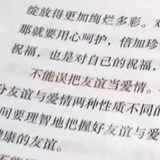 绽放得更加绚烂多彩。
那就要用心呵护，倍加珍
祝福，也是对自己的祝福，
不能误把友谊当爱情。
友谊与爱情两种性质不同的
间要理智地把握好友谊与爱
健康的友谊。